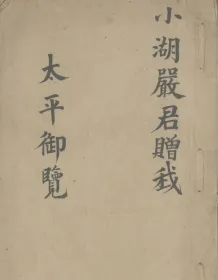 小湖嚴君贈我
太平御覽